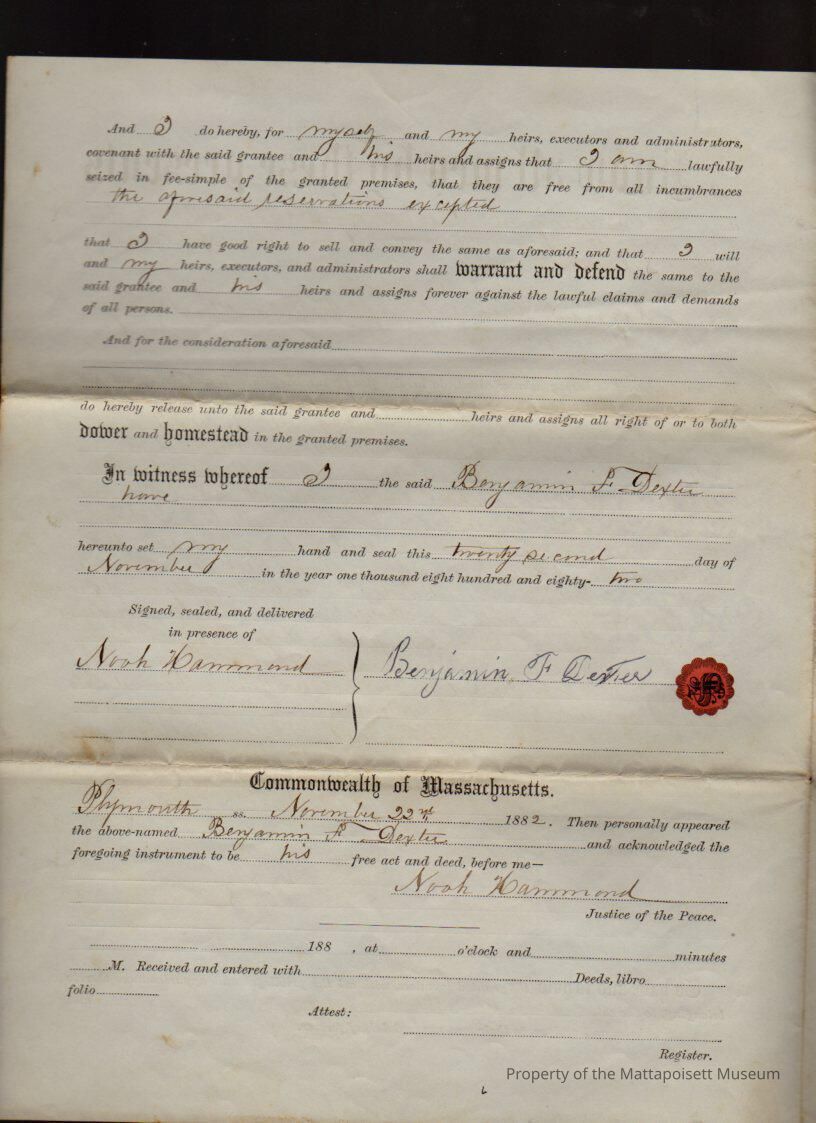 And I do hereby, for myself and my heirs, executors and administrators,
covenant with the said grantee and his heirs and assigns that I am lawfully
seized in fee-simple of the granted premises, that they are free from all incumbrances
the aforesaid reservations excepted
that I have good right to sell and convey the same as aforesaid; and that I will
and my heirs, executors, and administrators shall warrant and defend the same to the
said grantee and his heirs and assigns forever against the lawful claims and demands
of all persons.
And for the consideration aforesaid
do hereby release unto the said grantee and heirs and assigns all right of or to both
dower and homestead in the granted premises.
In witness whereof I the said Benjamin F Dexter
have
hereunto set my hand and seal this twenty second day of
November in the year one thousand eight hundred and eighty- two
Signed, sealed, and delivered
in presence of
Noah Hammond } Benjamin F Dexter
Commonwealth of Massachusetts.
Plymouth ss. November 22nd 1882. Then personally appeared
the above-named Benjamin F Dexter and acknowledged the
foregoing instrument to be his free act and deed, before me—
Noah Hammond
Justice of the Peace.
188 , at o'clock and minutes
M. Received and entered with Deeds, libro
folio
Attest:
Register.
Property of the Mattapoisett Museum